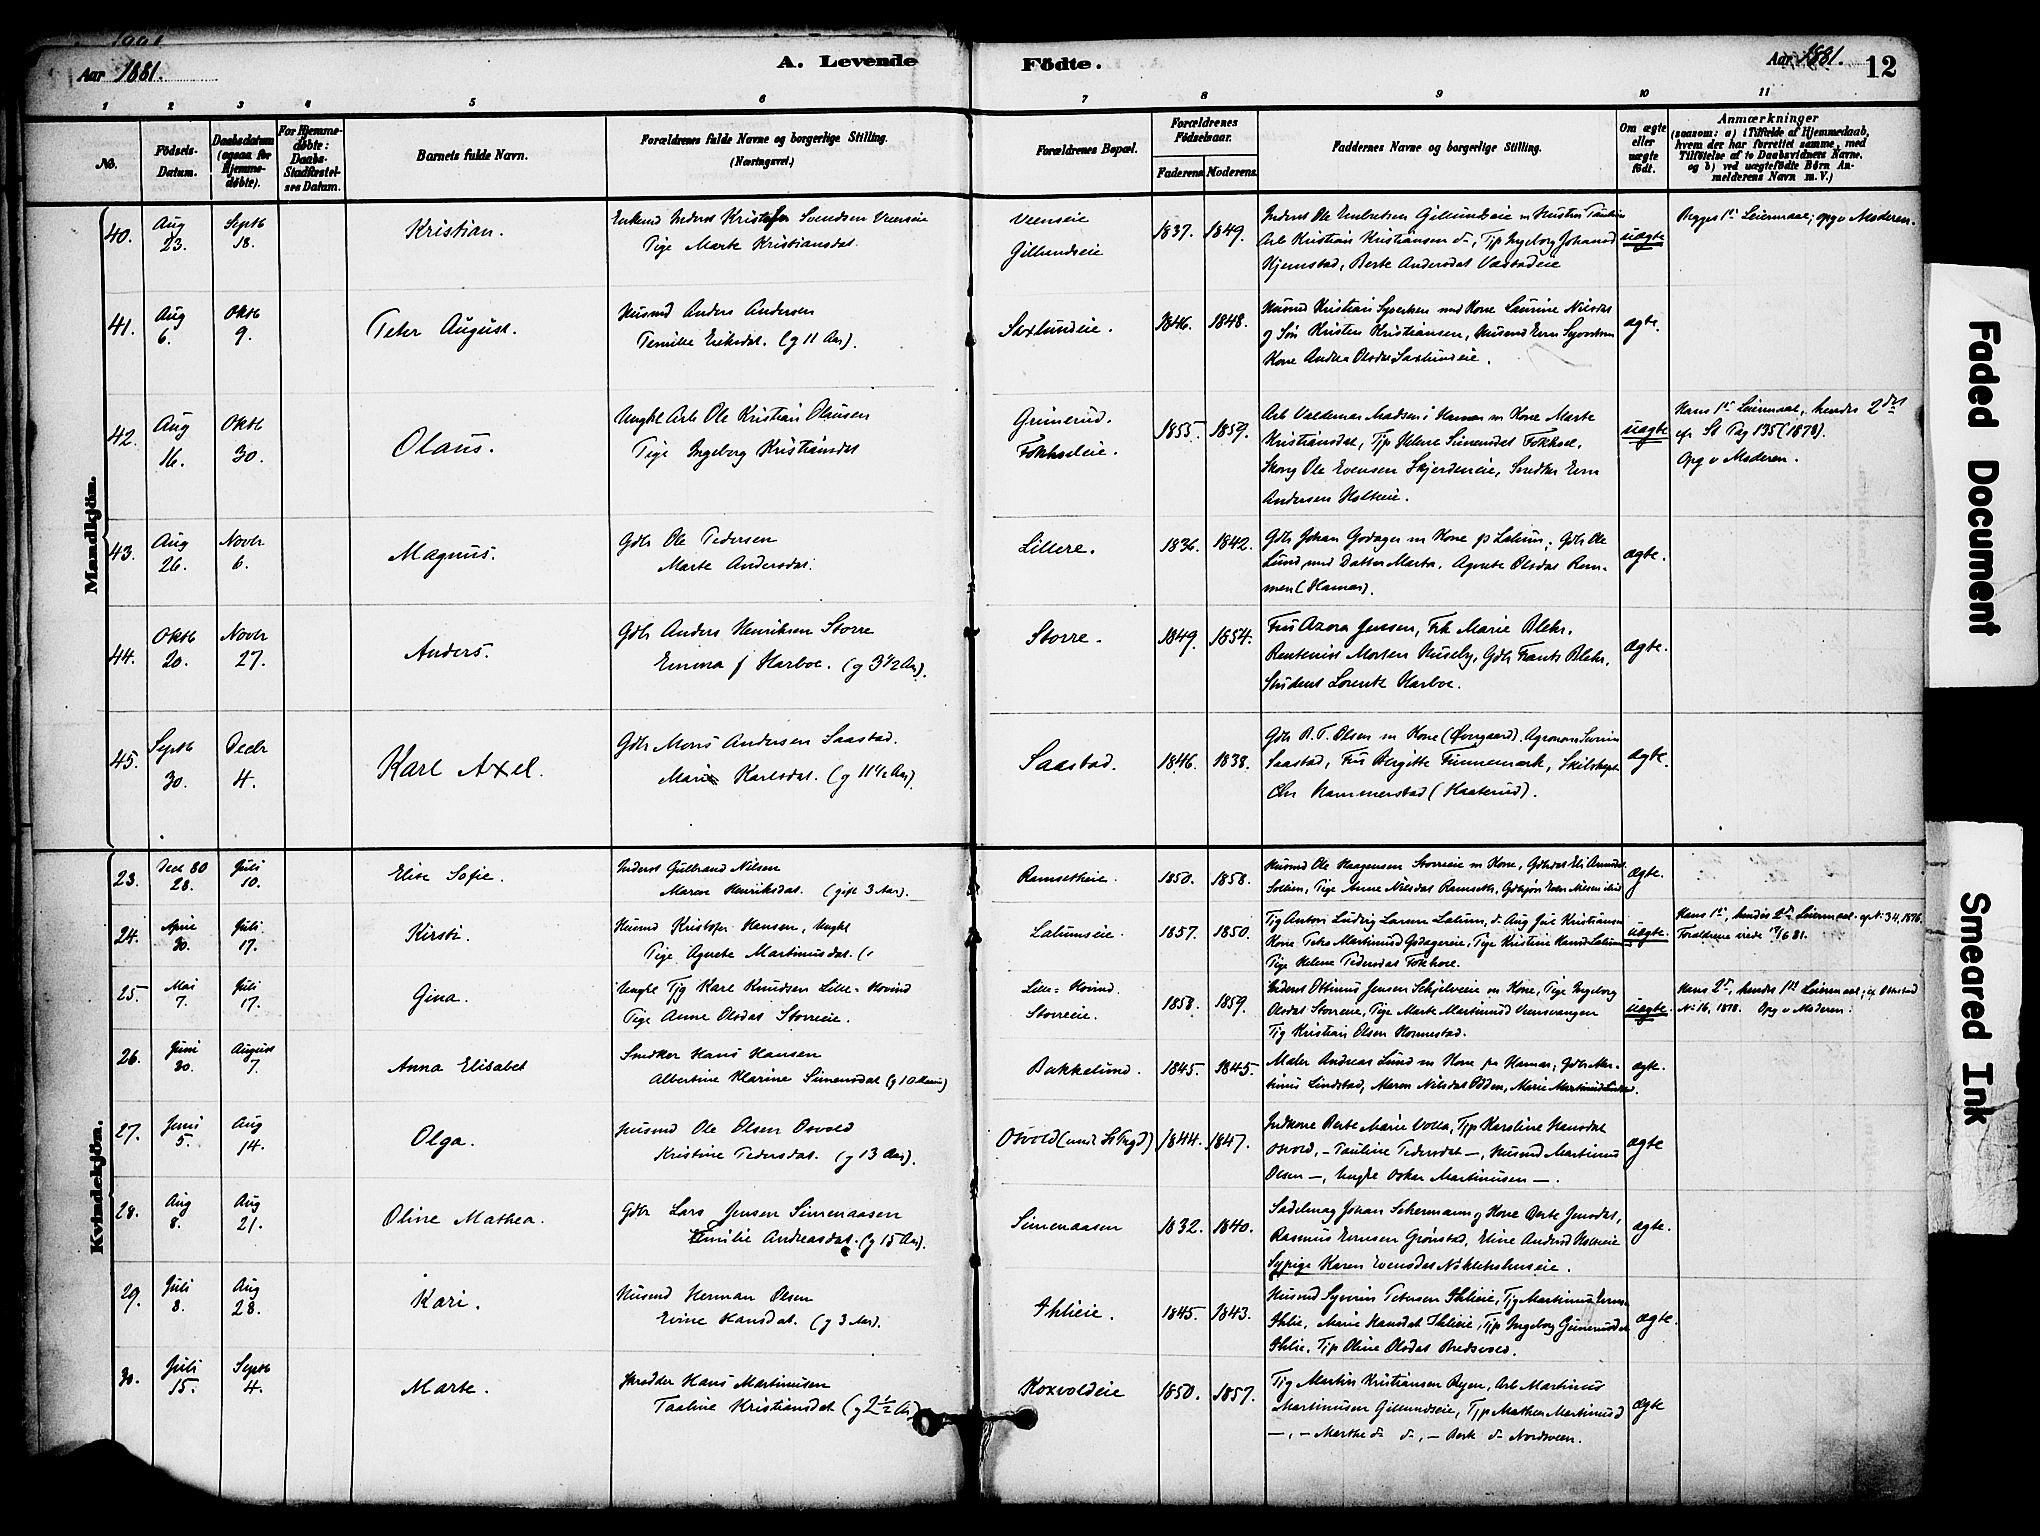 Aar 1881.
A. Levende Födte.
Aar 1881.
12
1 2 3 4 5 6 7 8 9 10 11
No.
Födsels-Datum.
Daabsdatum (ogsaa for Hjemmedøbte).
For Hjemmedøbte: Daabs-Stadfæstelses Datum.
Barnets fulde Navn.
Forældrenes fulde Navne og borgerlige Stilling.
(Næringsvei.)
Forældrenes Bopæl.
Forældrenes Födselsaar.
Faderens Moderens
Faddernes Navne og borgerlige Stilling.
Om ægte eller uægte født.
Anmærkninger
(saasom: a) i Tilfælde af Hjemmedaab, hvem der har forrettet samme, med Tilføielse af to Daabsvidners Navne. og b) ved uægtefödte Börn Anmelderens Navn m. V.)
Mandkjön.
40. Aug 23. Septb 18. Kristian.
Enkemd Inderst Kristofer Svendsen Veenseie
Pige Marte Kristiansdat.
Veenseie
Gillundseie
1837. 1849.
Arb Kristian Kristiansen
Kjemstad, Berte Andersdat
uægte
Begges 1ste Leiermaal; opg v Moderen.
41. Aug 6. Oktb 9. Peter August.
Husmd Anders Andersen
Pernille Eriksdat. (g 11 Aar).
Saxlundeie.
1846. 1848.
Kone Laurine Nilsdat
og Søn Kristen Kristiansen, Husmd
Kone Andrea Olsdat Saxlundeie.
ægte.
42. Aug 16. Oktb 30. Olaus.
Ungkl Arb Ole Kristian Olausen
Pige Ingeborg Kristiansdat
Grimerud.
Fokholeie.
1855. 1859.
Arb Valdemar Madsen i Hamar m Kone Marte
Kristiansdat, Tjp Helene Simensdat Fokhol.
Skomg Ole Evensen Skjerdeneie, Snedker Even
Andersen Holteie.
uægte
Hans 1ste Leiermaal, hendes 2det
cfr St Pag 135 (1878).
Opg v Moderen.
43. Aug 26. Novbr 6. Magnus.
Gdbr Ole Pedersen
Marte Andersdat.
Lillere.
1836. 1842.
Gdbr Johan Godager m Kone fr Lalum; Gdbr Ole
Lund med Datter Marta. Agnete Olsdat
(Hamar).
ægte.
44. Oktb 20. Novbr 27. Anders.
Gdbr Anders Henriksen Storre
Emma f Harboe. (g 3½ Aar).
Storre.
1849. 1854.
Fru Azora Jenssen, Frk Marie Blehr.
Rentenist Morten Huseby, Gdbr Frants Blehr,
Student Lorentz Harboe.
ægte.
45. Septb 30. Decbr 4. Karl Axel.
Gdbr Mons Andersen Saastad.
Marie Karlsdat. (g 11½ Aar).
Saastad.
1846. 1838.
Gdbr R. P. Olsen m Kone (Øvrgaard). Agronom Severin
Saastad, Fru Birgitte Finnemark,
Chr Hammerstad (Kaaterud).
ægte.
Kvindekjön.
23. Decb 80 28. Juli 10. Elise Sofie.
Inderst Gulbrand Nilsen
Maren Henriksdat. (gift 3 Aar).
Ramsetheie.
1850. 1858.
Husmd Ole Haagensen Storreie m Kone,
Pige Anne Nilsdat Ramseth,
ægte.
24. April 30. Juli 17. Kirsti.
Husmd Kristofer Hansen, Ungkl
Pige Agnete Martinusdat. (
Lalumseie.
1857. 1850.
Tjg Anton Ludvig Larsen Lalum,
Pige Helene Pedersdat Fokhol.
uægte.
Hans 1ste, hendes 2det Leiermaal. No 34, 1876.
Forældrene viede
25. Mai 7. Juli 17. Gina.
Ungkl Tjg Karl Knudsen Lille-Hovind
Pige Anne Olsdat Storreie.
Lille-Hovind.
Storreie.
1858. 1859.
Inderst Ottinus Jensen m Kone, Pige Ingeborg
Olsdat Storreie, Pige Marte Martinusd Veensvangen
Tjg Kristian Olsen Hommestad.
uægte.
Hans 2det, hendes 1ste Leiermaal; cfr Ottestad
No 16, 1878. Opg v Moderen.
26. Juni 30. August 7. Anna Elisabet
Snedker Hans Hansen
Albertine Karine Simensdat (g 10 Aar)
Bakkelund.
1845. 1845.
Maler Andreas Lund m Kone fr Hamar, Gdbr Martinus Lindstad, Maren Nilsdat Odden, Marie
ægte.
27. Juni 5. Aug 14. Olga.
Husmd Ole Olsen Osvold
Kristine Pedersdat. (g 13 Aar).
Osvold (und St
1844. 1847.
Indkone Berte Marie Volla, Tjp Karoline Hansdat
Osvold, - Pauline Pedersdat -, Husmd Martinus
Olsen -, Ungkl Oskar Martinusen -.
ægte
28. Aug 8. Aug 21. Oline Mathea.
Gdbr Lars Jensen Simenaasen
Emilie Andreasdat. (g 15 Aar).
Simenaasen
1832. 1840.
Sadelmag Johan Schermann og Kone Berte Jensdat,
Rasmus Evensen Grønstad, Eline Andersd Holteie
Sypige Karen Evensdat
ægte.
29. Juli 8. Aug 28. Kari.
Husmd Herman Olsen
Evine Hansdat. (g 3 Aar).
Ihlieie.
1845. 1843.
Husmd Syverin Petersen Ihlieie, Tjg Martinus
Ihlie, Marie Hansdat Ihlieie, Tjp Ingeborg
Ihlie, Tjp Oline Olsdat Bredsvold.
ægte.
30. Juli 15. Septb 4. Marte.
Skredder Hans Martinusen
Pauline Kristiansdat (g 2½ Aar)
Roxvoldeie
1850. 1857.
Tjg Martin Kristiansen Ryen, Arb Martinus
Martinusen Gillundseie, Tjp Mathea Martinusd
-, - Marthe do do, - Berte do Nordveen.
ægte
Faded Document
Smeared Ink